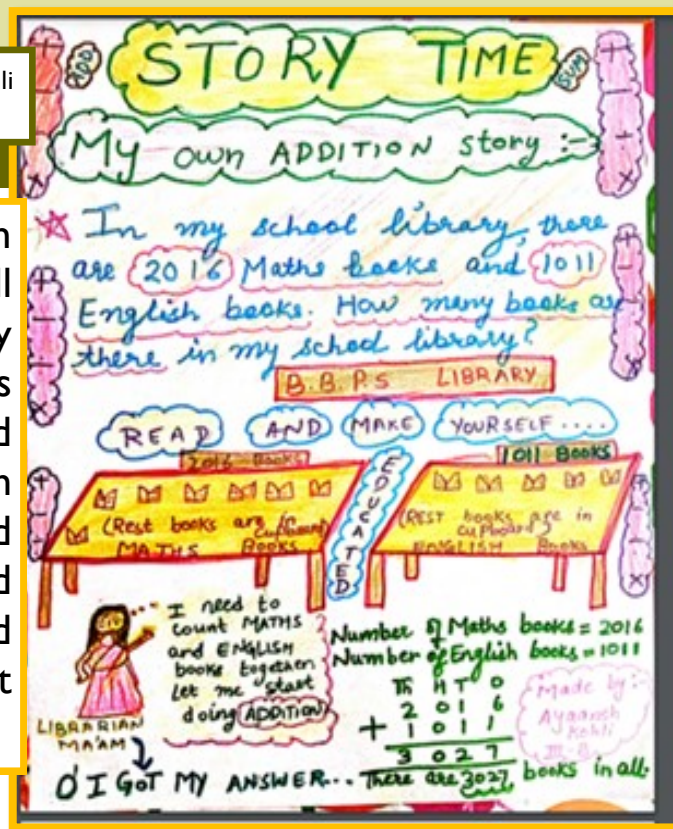 li
n
ll
y
s
d
n
d
d
d
t
STORY TIME
ADD
SUM
My own ADDITION story :-
In my school library, there
are 2016 Maths books and 1011
English books. How many books are
there in my school library?
B.B.P.S LIBRARY
READ AND MAKE YOURSELF....
EDUCATED
2016 BOOKS
(Rest books are in
cupboard)
MATHS BOOKS
1011 BOOKS
(REST books are in
cupboard)
ENGLISH BOOKS
I need to
count MATHS
and ENGLISH
books together
Let me start
doing ADDITION
LIBRARIAN
MA'AM
Number of Maths books = 2016
Number of English books = 1011
Th H T O
2 0 1 6
+ 1 0 1 1
3 0 2 7
Made by:-
Ayaansh
Kohli
III-B
O' I GOT MY ANSWER... There are 3027 books in all.